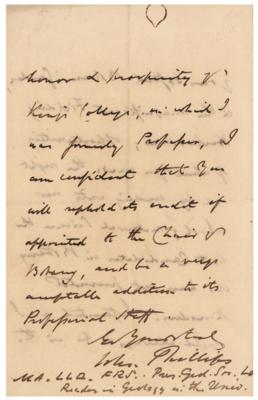 honor & prosperity of
King's College, in which I
was formerly Professor, I
am confident that you
will uphold its credit if
appointed to the Chair of
Botany, and be a very
acceptable addition to its
Professorial Staff.
John Phillips
MA. LLD. FRS. Pres. Geol. Soc. Lo
Reader in Geology in the Univ.